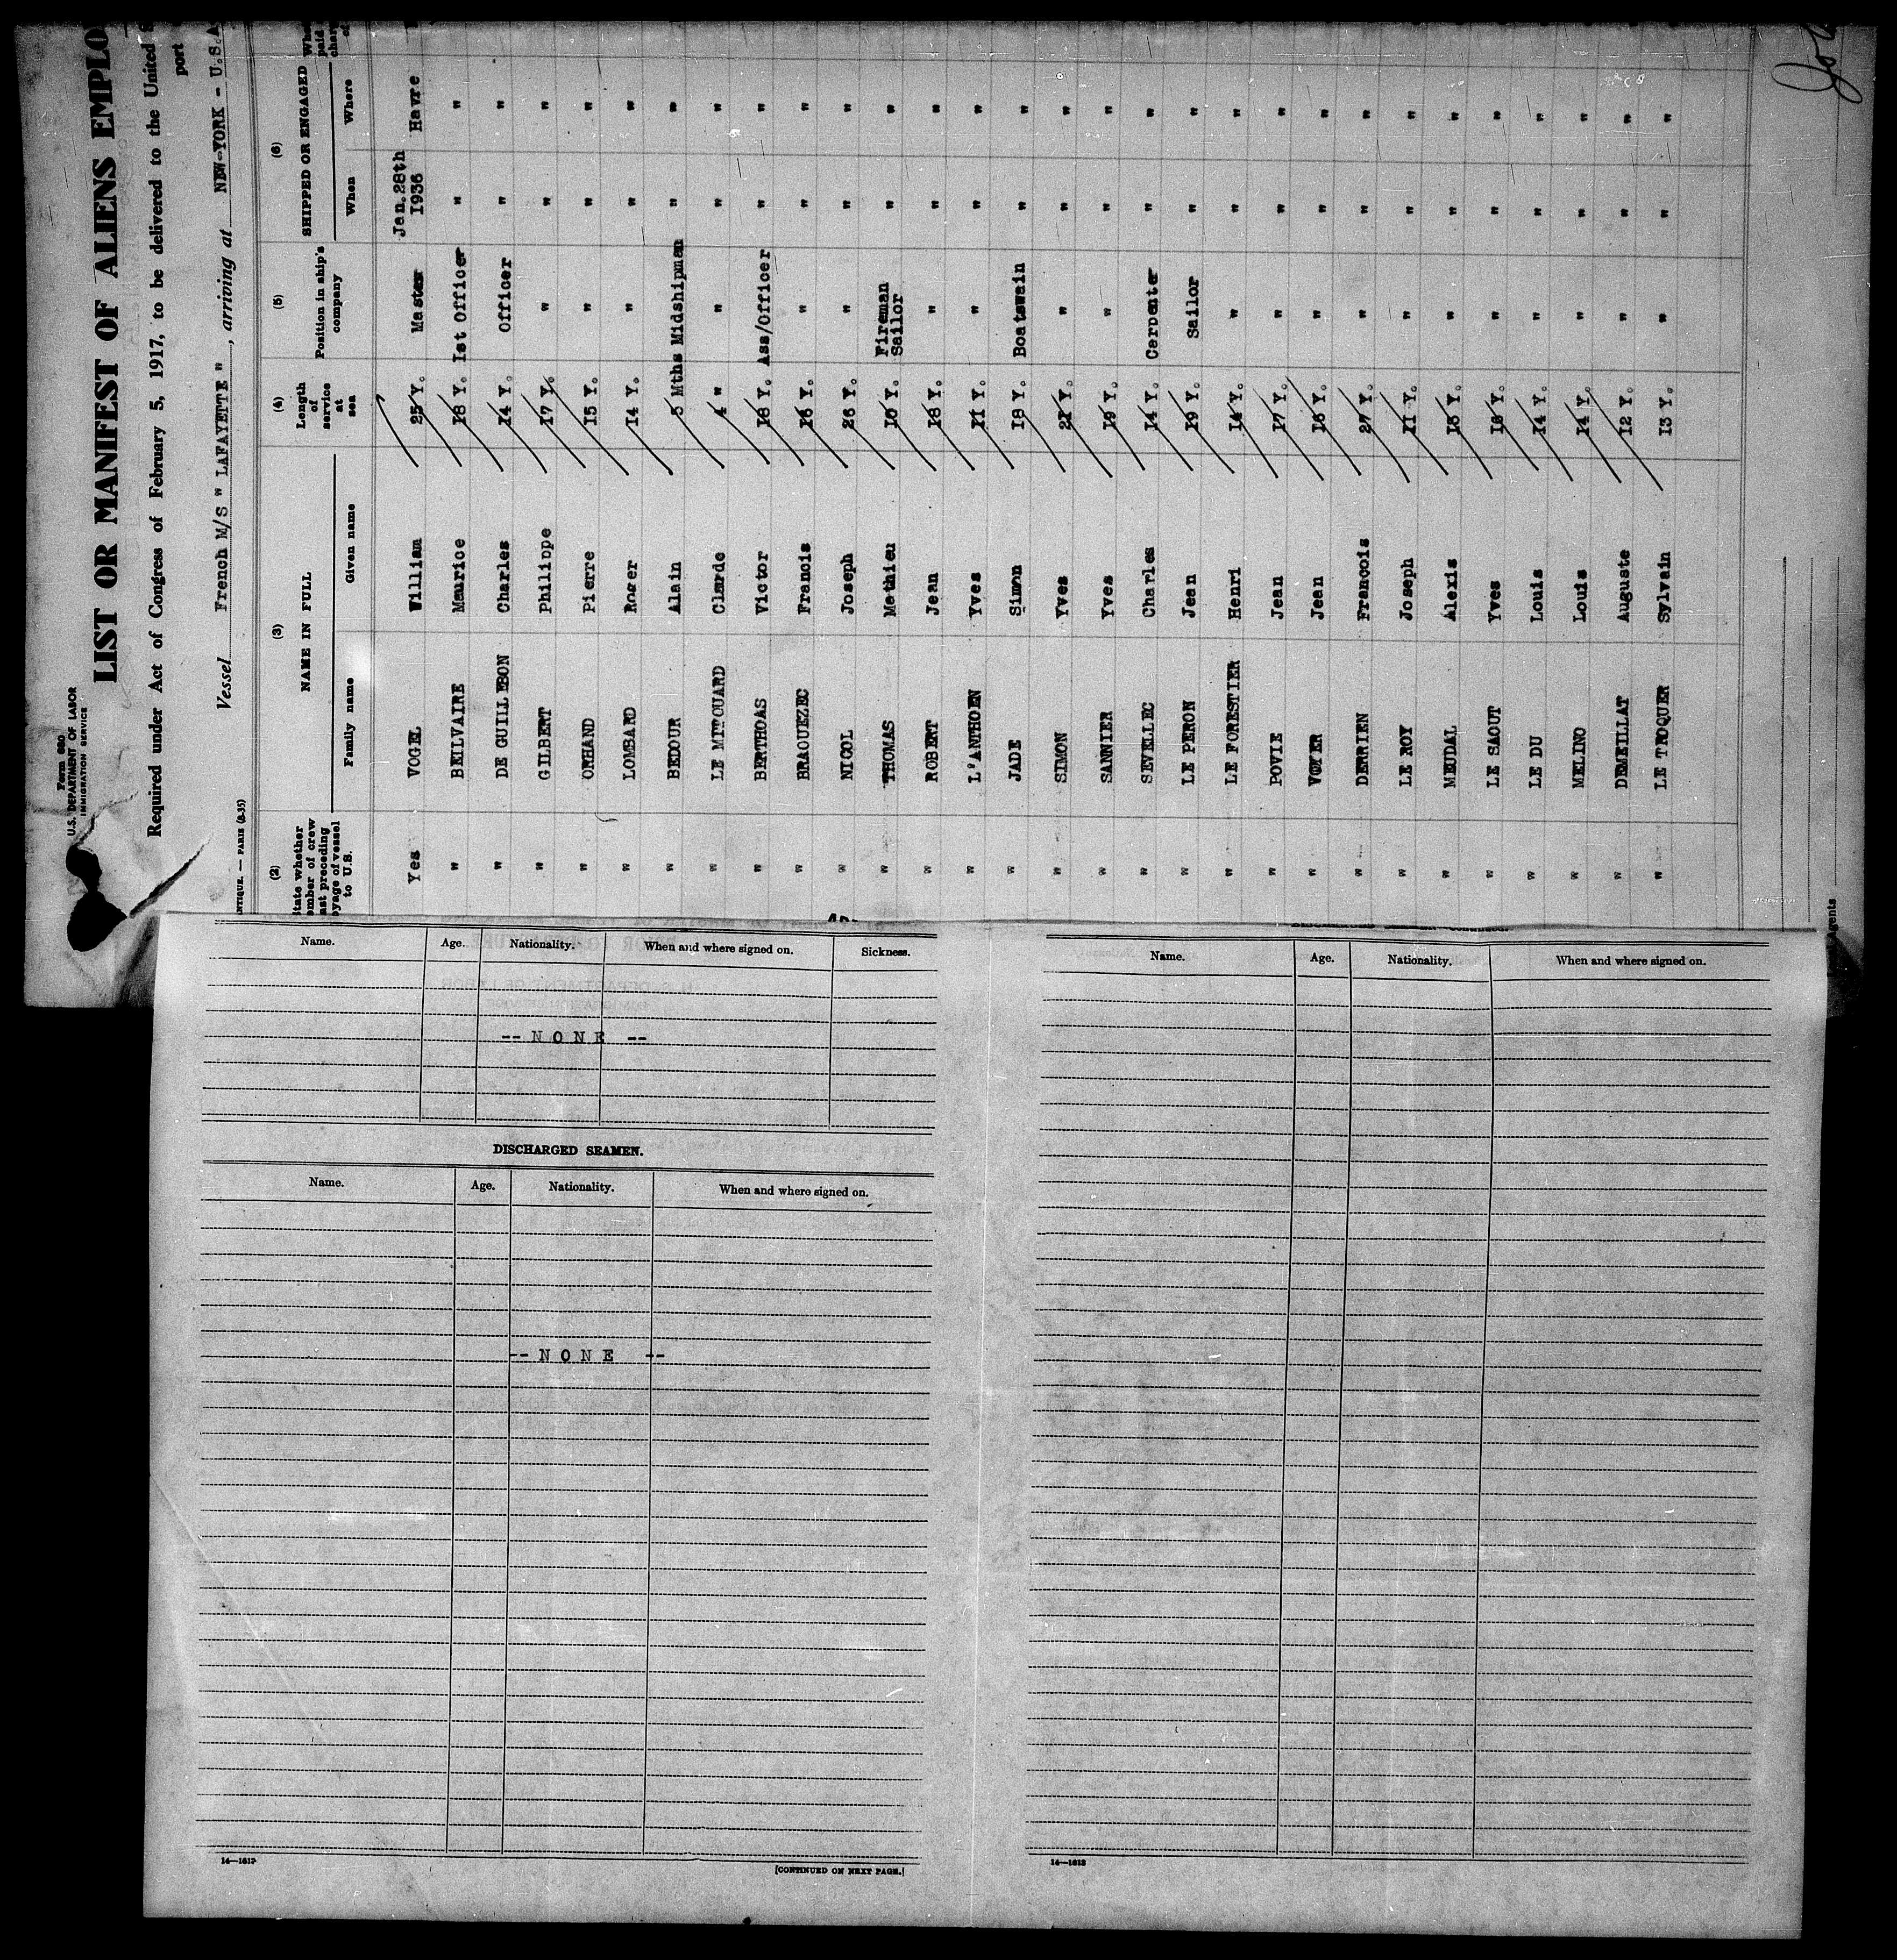 Form 680
U.S. DEPARTMENT OF LABOR
IMMIGRATION SERVICE
LIST OR MANIFEST OF ALIENS EMPLO
Required under Act of Congress of February 5, 1917, to be delivered to the United
port
Vessel French M/S " LAFAYETTE ", arriving at NEW-YORK - U.S.A
ANTIQUE. — PARIS (8-35)
(2) (3) (4) (5) (6)
NAME IN FULL SHIPPED OR ENGAGED
State whether member of crew last preceding voyage of vessel to U.S. Family name Given name Length of service at sea Position in ship's company When Where
Yes VOGEL William 25 Y. Master Jan.28th 1936 Havre
" BELVAIRE Maurice 18 Y. Ist Officer " "
" DE GUILLEBON Charles 14 Y. Officer " "
" GILBERT Philippe 17 Y. " " "
" ORHAND Pierre 15 Y. " " "
" LOMBARD Roger 14 Y. " " "
" BEDOUR Alain 5 Mths Midshipman " "
" LE MITOUARD Claude 4 " " " "
" BERTHOAS Victor 18 Y. Ass/Officer " "
" BRAOUEZEC Francis 26 Y. " " "
" NICOL Joseph 26 Y. " " "
" THOMAS Mathieu 10 Y. Fireman Sailor " "
" ROBERT Jean 18 Y. " " "
" L'ANTHOEN Yves 21 Y. " " "
" JADE Simon 18 Y. Boatswain " "
" SIMON Yves 21 Y. " " "
" SANNIER Yves 19 Y. " " "
" SEVELLEC Charles 14 Y. Carpenter " "
" LE PERON Jean 19 Y. Sailor " "
" LE FORESTIER Henri 14 Y. " " "
" POVIE Jean 17 Y. " " "
" VOYER Jean 16 Y. " " "
" DERRIEN Francois 27 Y. " " "
" LE ROY Joseph 21 Y. " " "
" MEUDAL Alexis 15 Y. " " "
" LE SAOUT Yves 18 Y. " " "
" LE DU Louis 14 Y. " " "
" MELINO Louis 14 Y. " " "
" DEMEILLAT Auguste 12 Y. " " "
" LE TROQUER Sylvain 13 Y. " " "
Agents
Name. Age. Nationality. When and where signed on. Sickness.
-- N O N E --
DISCHARGED SEAMEN.
Name. Age. Nationality. When and where signed on.
-- N O N E --
14—1613
[CONTINUED ON NEXT PAGE.]
Name. Age. Nationality. When and where signed on.
14—1613